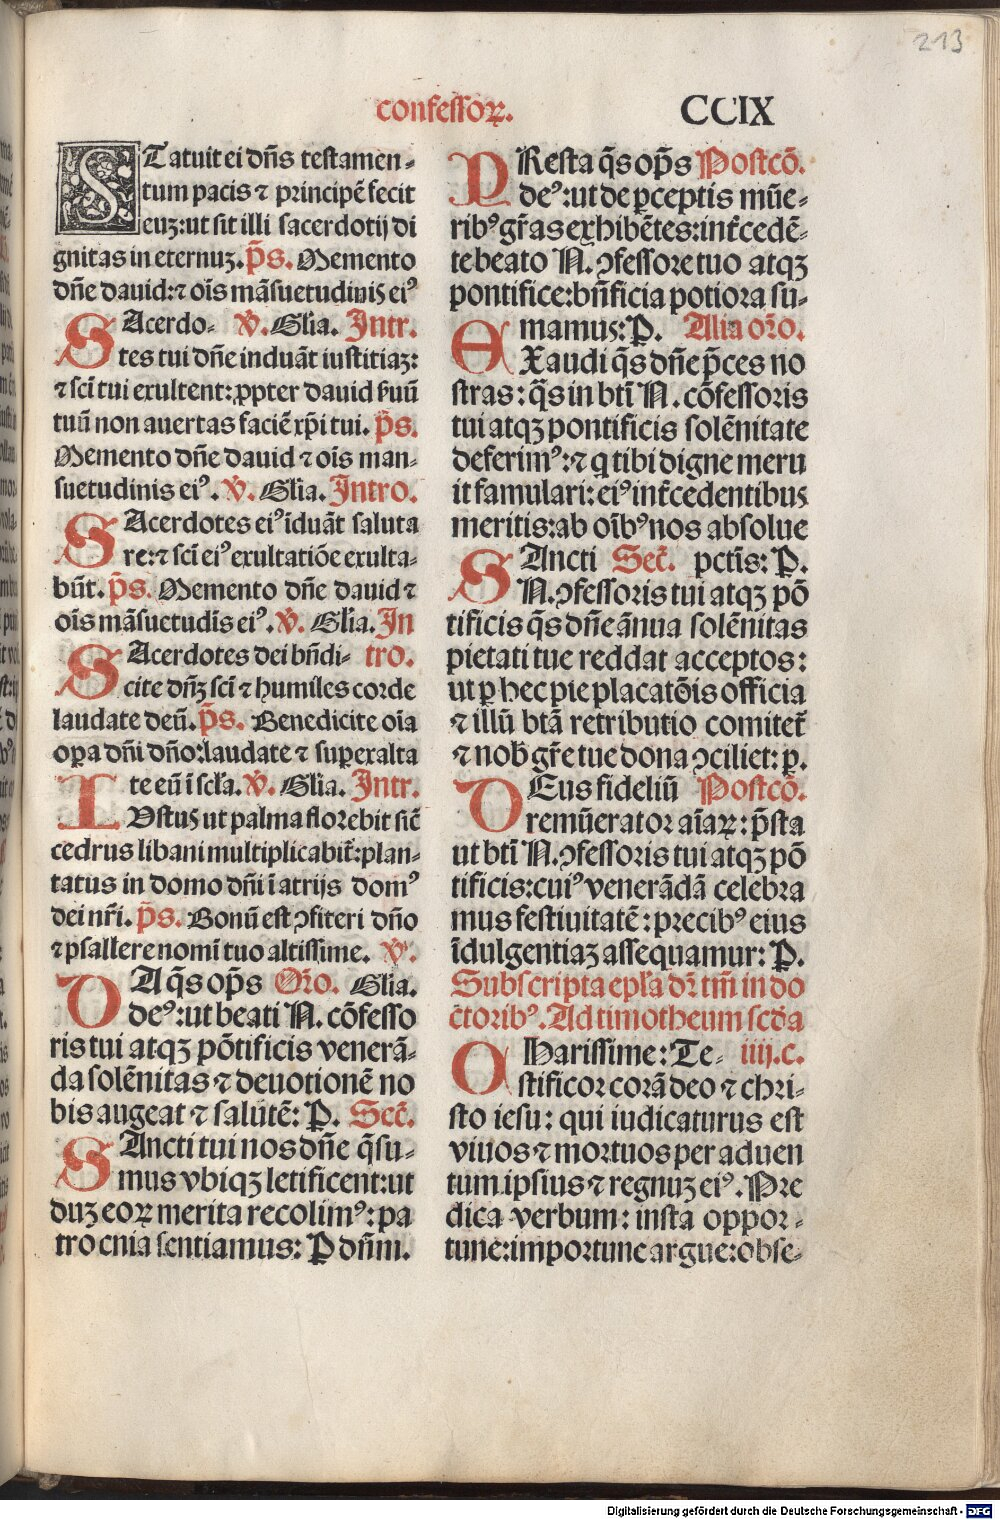 213
confessoꝝ. CCIX
STatuit ei dn̄s testamen⸗
tum pacis ⁊ principē fecit
euꝫ: ut sit illi sacerdotij di
gnitas in eternuꝫ. p̄s. Memento
dn̄e dauid: ⁊ oīs māsuetudinis eiꝰ
SAcerdo⸗ ℣. Gl̄ia. Intr.
tes tui dn̄e induāt iustitiaꝫ:
⁊ sct̄i tui exultent: ꝓpter dauid ẜuū
tuū non auertas faciē xp̄i tui. p̄s.
Memento dn̄e dauid ⁊ oīs man⸗
suetudinis eiꝰ. ℣. Gl̄ia. Intro.
SAcerdotes eiꝰ īduāt saluta
re: ⁊ sct̄i eiꝰ exultatiōe exulta⸗
būt. p̄s. Memento dn̄e dauid ⁊
oīs māsuetudīs eiꝰ. ℣. Gl̄ia. In
SAcerdotes dei bn̄di⸗ tro.
cite dn̄ꝫ sct̄i ⁊ humiles corde
laudate deū. p̄s. Benedicite oīa
oꝑa dn̄i dn̄o: laudate ⁊ suꝑexalta
te eū ī scl̄a. ℣. Gl̄ia. Intr.
IUstus ut palma florebit sic̄
cedrus libani multiplicabit̄: plan⸗
tatus in domo dn̄i ī atrijs domꝰ
dei nr̄i. p̄s. Bonū est ꝯfiteri dn̄o
⁊ psallere nomī tuo altissime. ℣.
DA q̄s op̄s Or̄o. Gl̄ia.
deꝰ: ut beati N. cōfesso
ris tui atqꝫ pōtificis venerā⸗
da solēnitas ⁊ deuotionē no
bis augeat ⁊ salutē: P. Sec̄.
SAncti tui nos dn̄e q̄su⸗
mus vbiqꝫ letificent: ut
duꝫ eoꝝ merita recolimꝰ: pa
trocnia sentiamus: P dn̄m.
PResta q̄s op̄s Postcō.
deꝰ: ut de ꝑceptis mūe⸗
ribꝰ gr̄as exhibētes: int̄cedē⸗
te beato N. ꝯfessore tuo atqꝫ
pontifice: bn̄ficia potiora su⸗
mamus: P. Alia or̄o.
EXaudi q̄s dn̄e p̄ces no
stras: q̄s in bt̄i N. cōfessoris
tui atqꝫ pontificis solēnitate
deferimꝰ: ⁊ q tibi digne meru
it famulari: eiꝰ int̄cedentibus
meritis: ab oībꝰ nos absolue
SAncti Sec̄. pctīs: P.
N. ꝯfessoris tui atqꝫ pō
tificis q̄s dn̄e ānua solēnitas
pietati tue reddat acceptos:
ut ꝑ hec pie placatōis officia
⁊ illū btā retributio comitet̄
⁊ nob̄ gr̄e tue dona ꝯciliet: ꝑ.
DEus fideliū Postcō.
remūerator aīaꝝ: p̄sta
ut bt̄i N. ꝯfessoris tui atqꝫ pō
tificis: cuiꝰ venerādā celebra
mus festiuitatē: precibꝰ eius
īdulgentiaꝫ assequamur: P.
Subscripta epl̄a dr̄ tm̄ in do
ctoribꝰ. Ad timotheum scd̄a
CHarissime: Te⸗ iiij.c.
stificor corā deo ⁊ chri⸗
sto iesu: qui iudicaturus est
viuos ⁊ mortuos per aduen
tum ipsius ⁊ regnuꝫ eiꝰ. Pre
dica verbum: insta oppor⸗
tune: importune argue: obse⸗
Digitalisierung gefördert durch die Deutsche Forschungsgemeinschaft - DFG